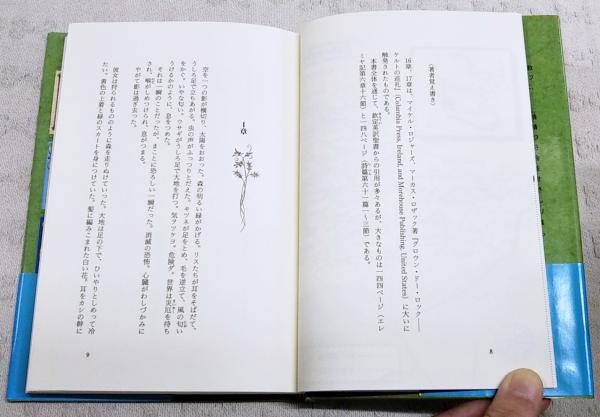 〈著者覚え書き〉
16章、17章は、マイケル・ロジャーズ、マーカス・ロザック著『グロウン・ドー・ロック――
ケルトの巡礼』(Columbia Press, Ireland, and Morehouse Publishing, United States) に大いに
触発されたものである。
本書全体を通じて、欽定英訳聖書からの引用が多々あるが、大きなものは一四四ページ（エレ
ミヤ記第六章十六節）と一四八ページ（詩篇第六十一篇一-三節）である。
8
1章
空を一つの影が横切り、太陽をおおった。森の明るい緑がかげる。リスたちが耳をそばだて、
うしろ足で立ちあがる。虫の声がふっつりとだえた。キツネが足をとめ、毛を逆立て、風の匂い
をかぐ。いやな匂い。ウサギがうしろ足で大地を打つ。気ヲツケヨ。危険ダ。世界は災厄を待ち
うけるかのように、息をつめた。
それは一瞬のことだったが、まことに恐ろしい一瞬だった。消滅の恐怖。心臓がわしづかみに
され、喉がしめつけられ、息がつまる。
やがて影は過ぎ去った。
彼女は狩られるもののように森を走りぬけていった。大地は足の下で、ひいやりとしめって冷
たい。黄色の上着と緑のスカートを身につけていた。髪に編みこまれた白い花。耳をカシの幹に
9